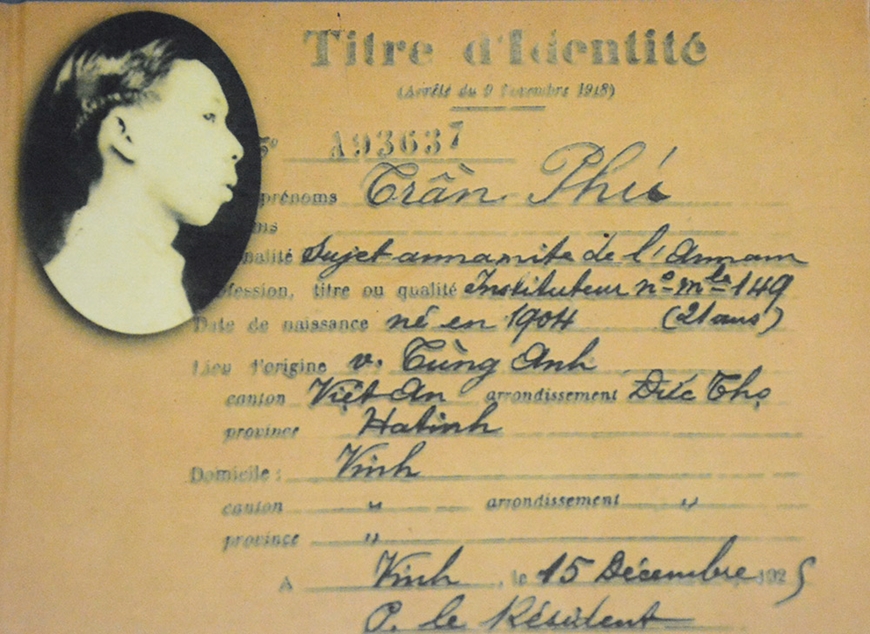 Titre d'Identité
(Arrêté du 9 Novembre 1918)
No A93637
prénoms Trần Phú
Sujet annamite de l'Annam
profession, titre ou qualité Instituteur no mle 149
Date de naissance né en 1904 (21 ans)
Lieu d'origine v. Tùng Anh
canton Việt An arrondissement Đức Thọ
province Hatinh
Domicile : Vinh
canton " arrondissement "
province "
A Vinh, le 15 Décembre 1925
P. le Résident